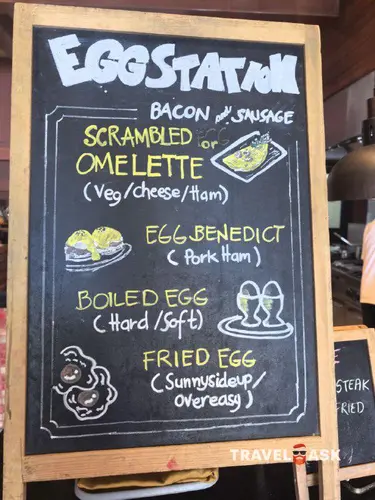 EGGSTATION
BACON and SAUSAGE
SCRAMBLED or
OMELETTE
(Veg/cheese/Ham)
EGG BENEDICT
(Pork Ham)
BOILED EGG
(Hard/Soft)
FRIED EGG
(Sunnysideup/
overeasy)
STEAK
FRIED
TRAVEL ASK